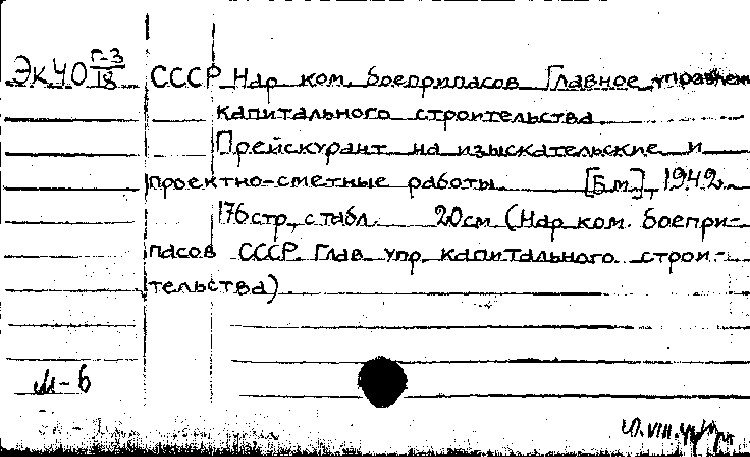 ЭкЧО Г-3/18 СССР Нар ком. боеприпасов Главное управлен
капитального строительства.
Прейскурант на изыскательские и
проектно-сметные работы. [Б.м.], 1942г.
176 стр., с табл. 20 см (Нар ком. боепри-
пасов СССР. Глав. упр. капитального строи-
тельства).
М-6